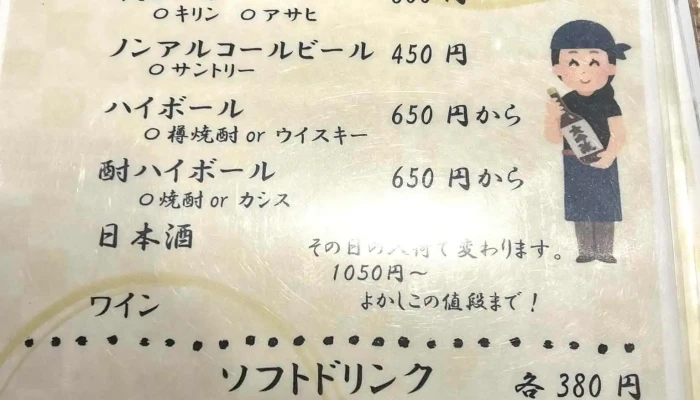 〇 キリン 〇 アサヒ
ノンアルコールビール 450 円
〇 サントリー
ハイボール 650 円から
〇 樽焼酎 or ウイスキー
酎ハイボール 650 円から
〇 焼酎 or カシス
日本酒 その日の入荷で変わります。
1050円～
ワイン よかしこの値段まで！
ソフトドリンク 各 380 円